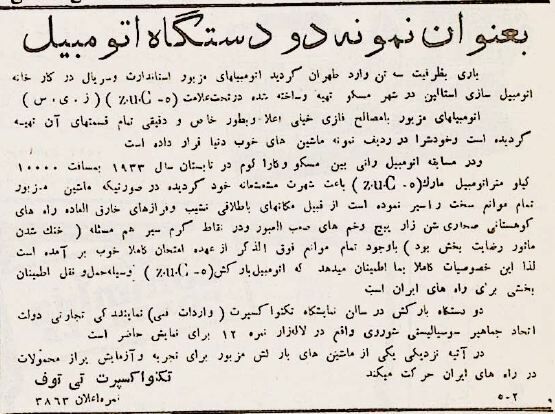 بعنوان نمونه دو دستگاه اتومبیل
باری بظرفیت سه تن وارد طهران گردید اتومبیلهای مزبور استاندارت وسریال در کار خانه
اتومبیل سازی استالین در شهر مسکو تهیه وساخته شده درتحت‌علامت (Z.u.C -٥) (ز ی س)
اتومبیلهای مزبور بامصالح فلزی خیلی اعلا وبطور خاص و دقیقی تمام قسمتهای آن تهیه
گردیده است وخودشرا در ردیف نمونه ماشین های خوب دنیا قرار داده است
ودر مسابقه اتومبیل رانی بین مسکو وکارا کوم در تابستان سال ۱۹۳۳ بمسافت ۱۰۰۰۰
کیلو متراتومبیل مارك (Z.u.C -٥) باعث شهرت مستعمانه خود گردیده در صورتیکه ماشین مزبور
تمام موانع سخت راسیر نموده است از قبیل مکانهای باطلاقی نشیب وفرازهای خارق العاده راه های
کوهستانی صحاری شن زار پیچ وخم های صعب العبور ودر نقاط گرم سیر هم مسئله (خنك شدن
ماتور رضایت بخش بود) باوجود تمام موانع فوق الذکر از عهده امتحان کاملا خوب بر آمده است
لذا این خصوصیات کاملا بما اطمینان میدهد که اتومبیل بارکش (Z.u.C -٥) وسیله‌حمل‌و نقل اطمینان
بخشی برای راه های ایران است
دو دستگاه بارکش در سالن نمایشگاه تکنواکسپرت (واردات فنی) نمایندگی تجارتی دولت
اتحاد جماهیر سوسیالیستی شوروی واقع در لاله‌زار نمره ۱۲ برای نمایش حاضر است
در آتیه نزدیکی یکی از ماشین های بار کش مزبور برای تجربه وآزمایش براز محمولات
در راه های ایران حرکت میکند
تکنواکسپرت تی توف
۲-٥
نمره‌اعلان ۳۸٦۳